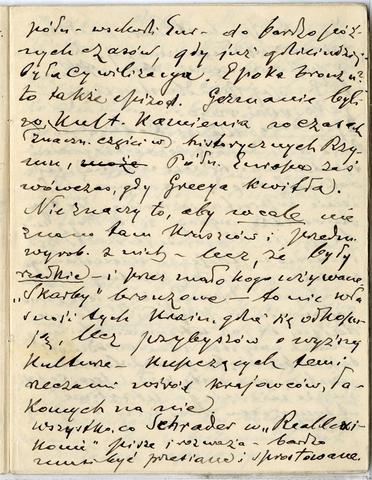 półn.- wschodn. Eur.- do bardzo póź-
nych czasów, gdy już gdzieindziej
była cywilizacya. Epoka bronzu?
to także epizod. Germanie byli
w kult. Kamienia w czasach
(znaczn. części w) historycznych Rzy-
mu, może Półn. Europa zaś
wówczas, gdy Grecya kwitła).
Nie znaczy to, aby wcale nie
znano tam kruszców i przedm.
wyrob. z nich – lecz, że były
rzadkie – i przez mało kogo używane
„Skarby" bronzowe – to nie wła
sność tych krain, gdzie się odkopu-
ją, lecz przybyszów o wyższej
kulturze – kupczących temi
rzeczami wśród krajowców, ła-
komych na nie.
Wszystko, co Schrader w „Reallexi-
konie" pisze i rozważa – bardzo
musi być przesiane i sprostowane.